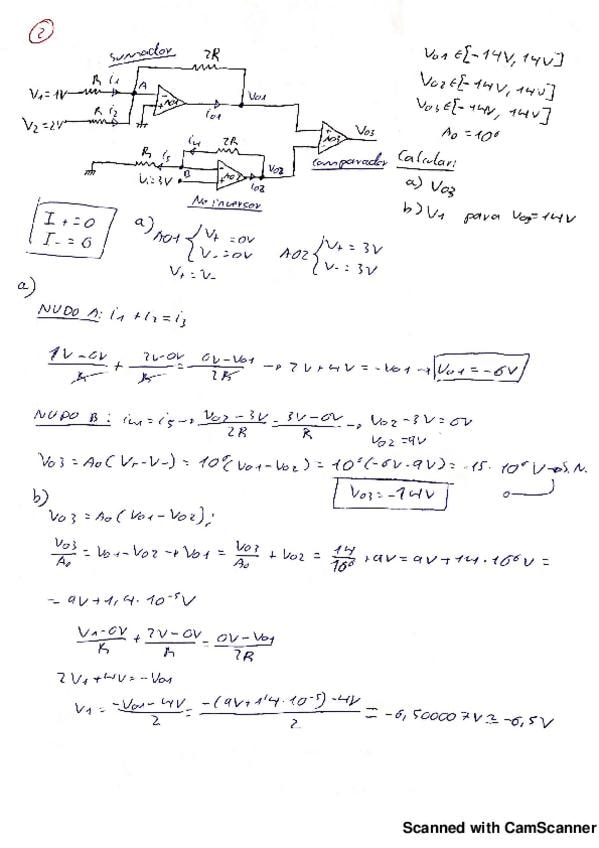 2
sumador
2R
V1=1V R i1 A
V2=2V R i2
AO1 i01 V01
R i5 i4 2R
Vi=3V B AO2 i02 V02
AO3 V03
comparador
No inversor
V01 ∈ [-14V, 14V]
V02 ∈ [-14V, 14V]
V03 ∈ [-14V, 14V]
A0 = 10⁶
Calcular:
a) V03
b) V1 para V03=14V
I+=0
I-=0
a) AO1 { V+ = 0V
V- = 0V
V+ = V-
AO2 { V+ = 3V
V- = 3V
a)
NUDO A: i1 + i2 = i3
1V-0V/R + 2V-0V/R = 0V-V01/2R → 2V+4V = -V01 → V01 = -6V
NUDO B: i4 = i5 → V02-3V/2R = 3V-0V/R → V02-3V = 6V
V02 = 9V
V03 = A0(V+-V-) = 10⁶(V01-V02) = 10⁶(-6V-9V) = -15·10⁶V → S.N.
V03 = -14V
b)
V03 = A0(V01-V02);
V03/A0 = V01-V02 → V01 = V03/A0 + V02 = 14/10⁶ + 9V = 9V + 14·10⁻⁶V =
= 9V + 1,4·10⁻⁵V
V1-0V/R + 2V-0V/R = 0V-V01/2R
2V1+4V = -V01
V1 = -V01-4V/2 = -(9V+1,4·10⁻⁵)-4V/2 = -6,500007V ≅ -6,5V
Scanned with CamScanner